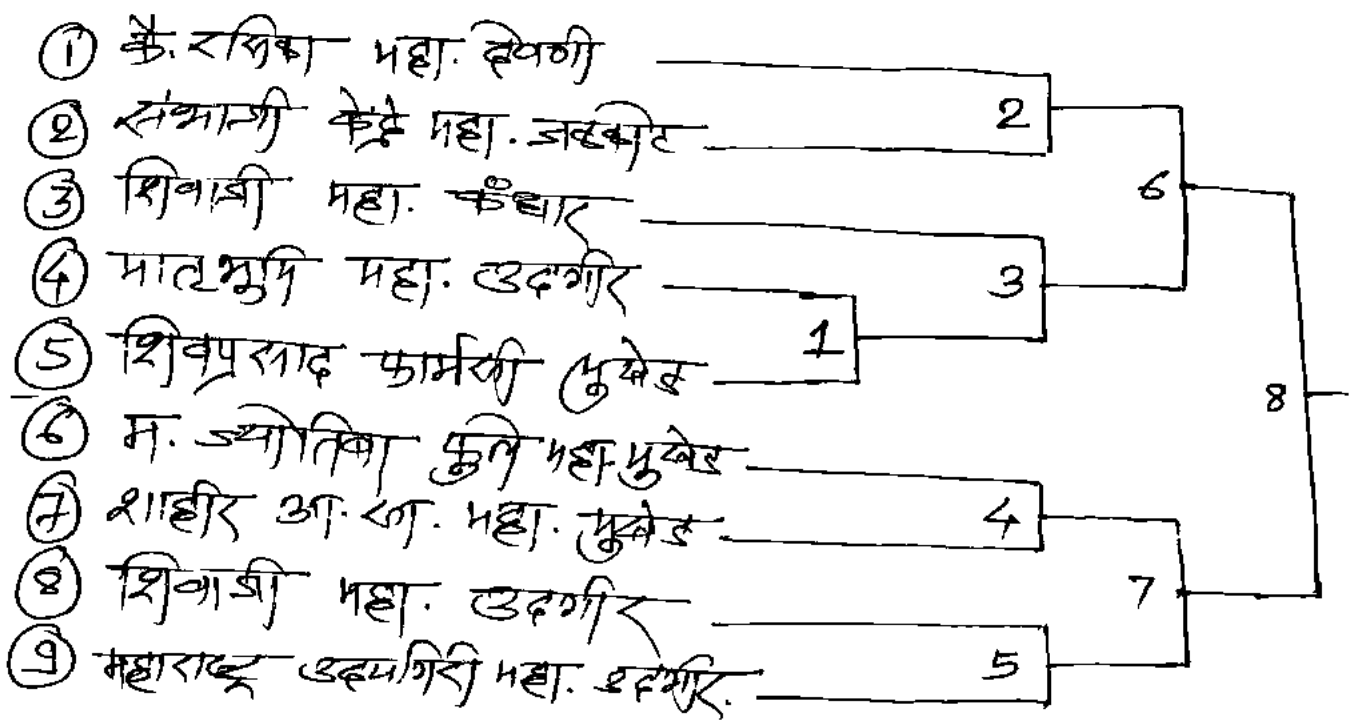 ① कै. रसिका महा. देवणी
② संभाजी केंद्रे महा. जळकोट
③ शिवाजी महा. कंधार
④ मातृभुमि महा. उदगीर
⑤ शिवप्रसाद फार्मसी मुखेड
⑥ म. ज्योतिबा फुले महा. मुखेड
⑦ शाहीर आ. सा. महा. मुखेड
⑧ शिवाजी महा. उदगीर
⑨ महाराष्ट्र उदयगिरी महा. उदगीर.
2
6
3
1
8
4
7
5